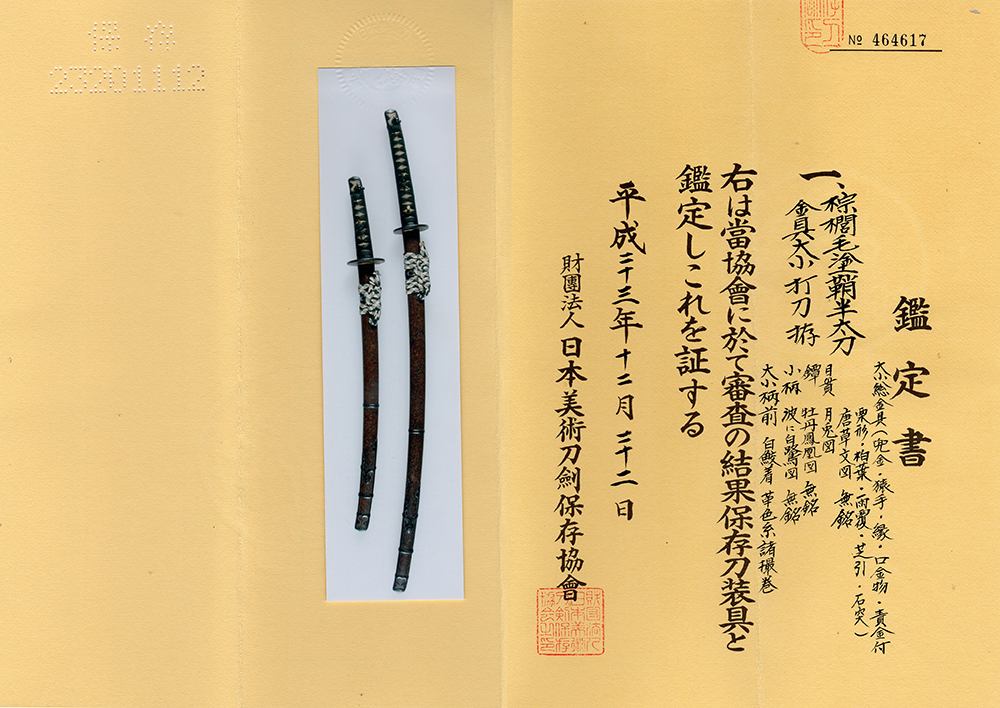 保存
23201112
№ 464617
鑑定書
一、棕櫚毛塗鞘半太刀
金具大小打刀拵
大小総金具(兜金・猿手・縁・口金物・責金付
栗形・柏葉・雨覆・芝引・石突)
唐草文図 無銘
目貫 月兎図
鐔 牡丹鳳凰図 無銘
小柄 波に白鷺図 無銘
大小柄前 白鮫着 革色糸諸撮巻
右は當協會に於て審査の結果保存刀装具と
鑑定しこれを証する
平成二十三年十二月二十二日
財團法人日本美術刀劍保存協會